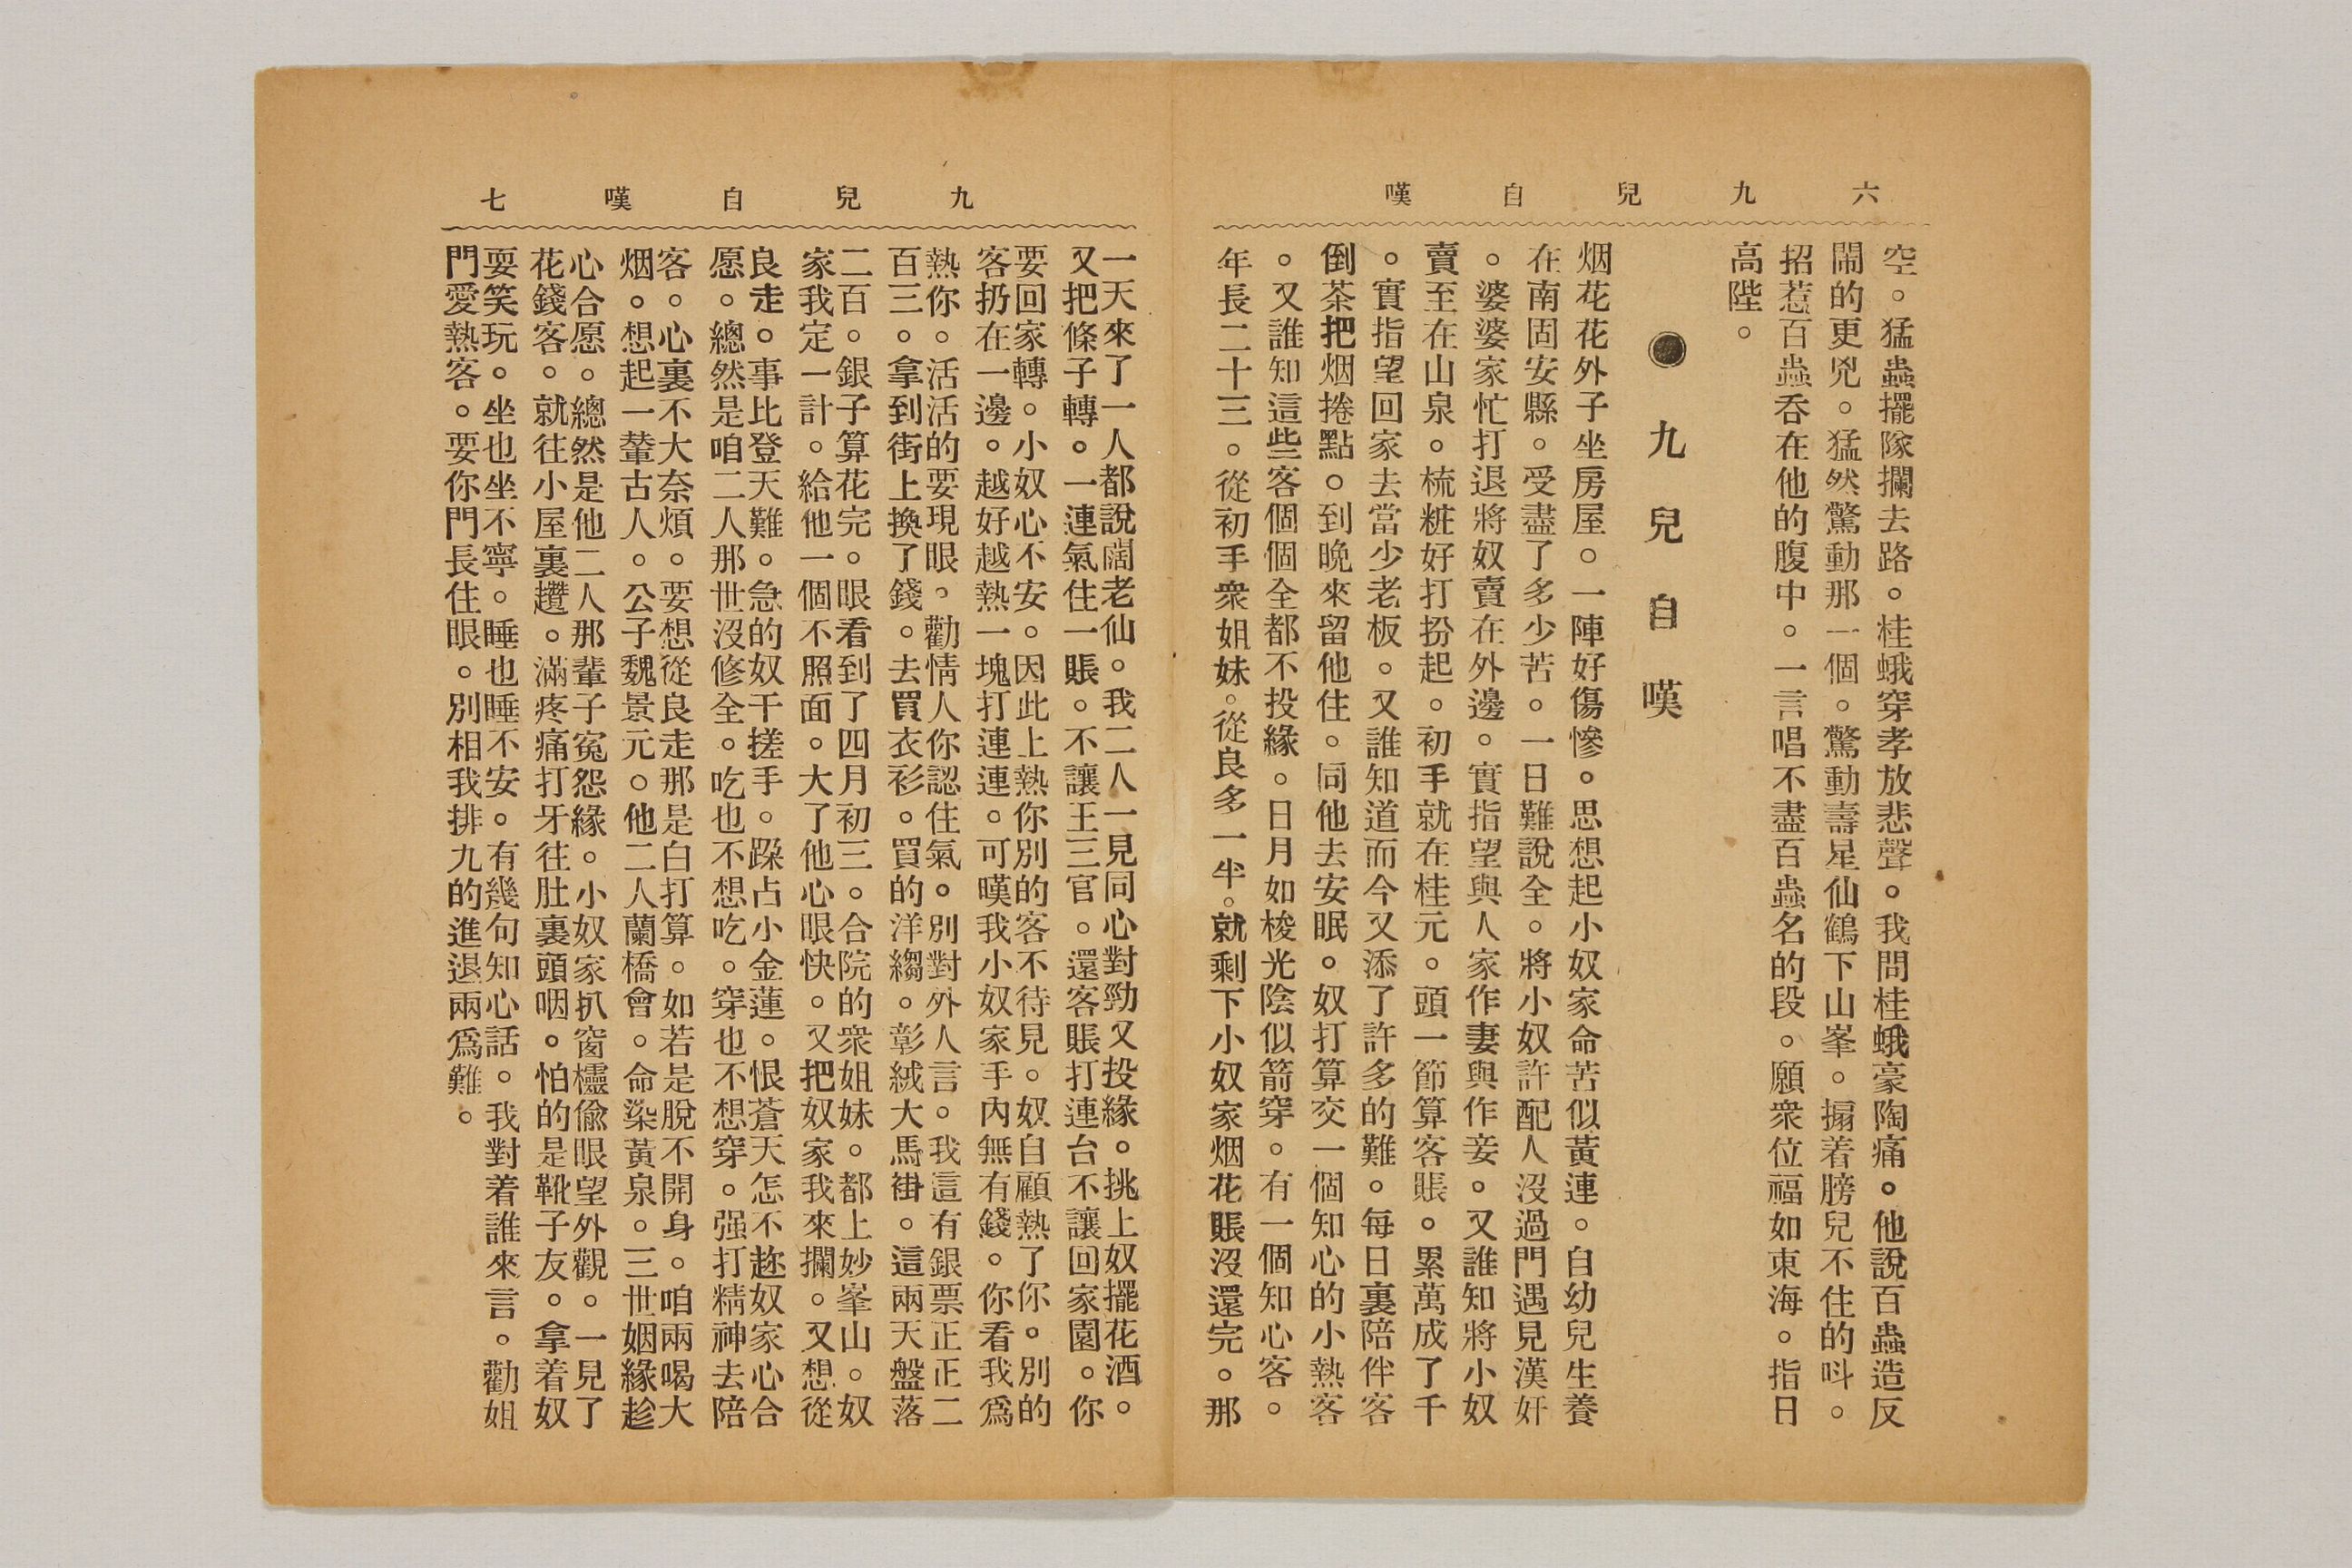 六　九兒自嘆
空。猛蟲擺隊攔去路。桂蛾穿孝放悲聲。我問桂蛾豪陶痛。他說百蟲造反
鬧的更兇。猛然驚動那一個。驚動壽星仙鶴下山峯。搧着膀兒不住的呌。
招惹百蟲呑在他的腹中。一言唱不盡百蟲名的段。願衆位福如東海。指日
高陞。
●九兒自嘆
烟花花外子坐房屋。一陣好傷慘。思想起小奴家命苦似黃連。自幼兒生養
在南固安縣。受盡了多少苦。一日難說全。將小奴許配人沒過門遇見漢奸
。婆婆家忙打退將奴賣在外邊。實指望與人家作妻與作妾。又誰知將小奴
賣至在山泉。梳粧好打扮起。初手就在桂元。頭一節算客賬。累萬成了千
。實指望回家去當少老板。又誰知道而今又添了許多的難。每日裏陪伴客
倒茶把烟捲點。到晚來留他住。同他去安眠。奴打算交一個知心的小熱客
。又誰知這些客個個全都不投緣。日月如梭光陰似箭穿。有一個知心客。
年長二十三。從初手衆姐妹。從良多一半。就剩下小奴家烟花賬沒還完。那
九兒自嘆　七
一天來了一人都說闊老仙。我二人一見同心對勁又投緣。挑上奴擺花酒。
又把條子轉。一連氣住一賬。不讓王三官。還客賬打連台不讓回家園。你
要回家轉。小奴心不安。因此上熱你別的客不待見。奴自顧熱了你。別的
客扔在一邊。越好越熱一塊打連連。可嘆我小奴家手內無有錢。你看我爲
熱你。活活的要現眼。勸情人你認住氣。別對外人言。我這有銀票正正二
百三。拿到街上換了錢。去買衣衫。買的洋縐。彰絨大馬褂。這兩天盤落
二百。銀子算花完。眼看到了四月初三。合院的衆姐妹。都上妙峯山。奴
家我定一計。給他一個不照面。大了他心眼快。又把奴家我來攔。又想從
良走。事比登天難。急的奴干搓手。跺占小金蓮。恨蒼天怎不趂奴家心合
愿。總然是咱二人那世沒修全。吃也不想吃。穿也不想穿。强打精神去陪
客。心裏不大奈煩。要想從良走那是白打算。如若是脫不開身。咱兩喝大
烟。想起一輩古人。公子魏景元。他二人蘭橋會。命染黃泉。三世姻緣趁
心合愿。總然是他二人那輩子寃怨緣。小奴家扒窗櫺偸眼望外觀。一見了
花錢客。就往小屋裏趲。滿疼痛打牙往肚裏頭咽。怕的是靴子友。拿着奴
耍笑玩。坐也坐不寧。睡也睡不安。有幾句知心話。我對着誰來言。勸姐
門愛熱客。要你門長住眼。別相我排九的進退兩爲難。